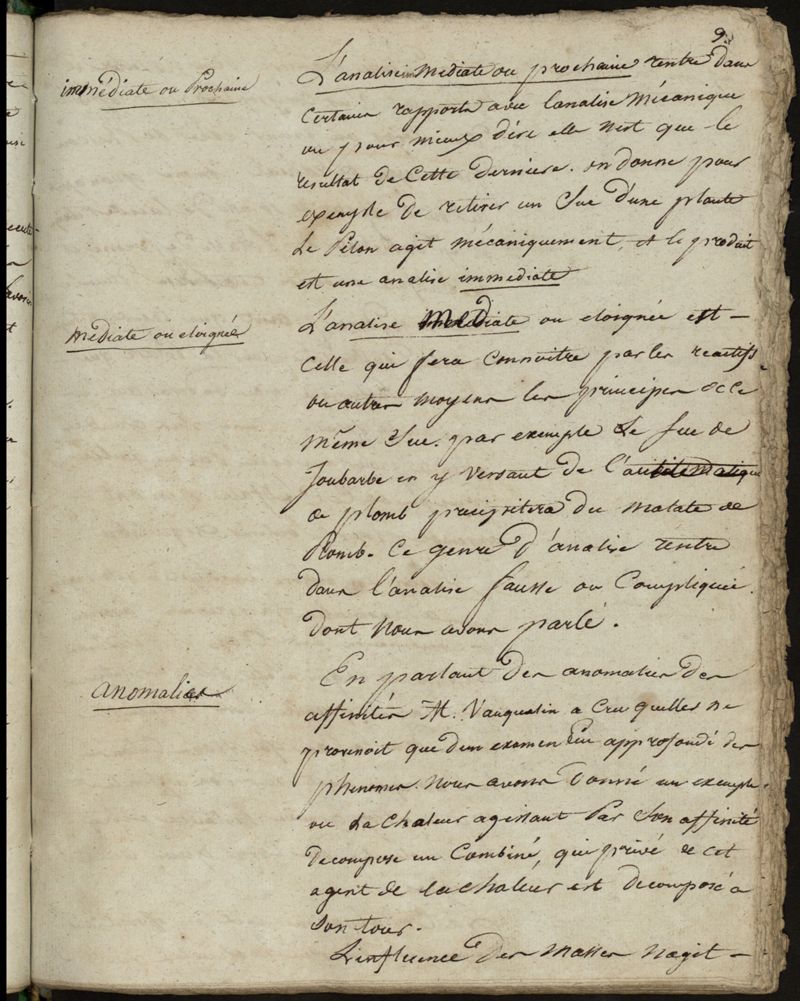 9.
immédiate ou Prochaine
L'analise immediate ou prochaine rentre dans
Certains rapports avec lanalise Mécanique
ou pour mieux dire elle n'est que le
resultat de Cette derniere. on donne pour
exemple de retirer un Suc d'une plante
Le Pilon agit mécaniquement, et le produit
est une analise immediate
médiate ou eloignée
L'analise Mediate ou eloignée est –
Celle qui fera Connoitre par les reactifs
ou autres moyens les principes de ce
même Suc. par exemple Le suc de
Joubarbe en y versant de l'
de plomb precipitera du Malate de
Plomb. Ce genre d'analise rentre
dans l'analise fausse ou Compliquée
dont Nous avons parlé.
anomalies
En parlant des anomalies des
affinités M. Vauquelin a Cru quelles ne
provenoit que d'un examen peu approfondé des
phenomes. Nous avons donné un exemple
ou La Chaleur agissant Par Son affinité
decompose un Combiné, qui privé de cet
agent de la chaleur est decomposé a
son tour.
L'influence des Masses Nagit –